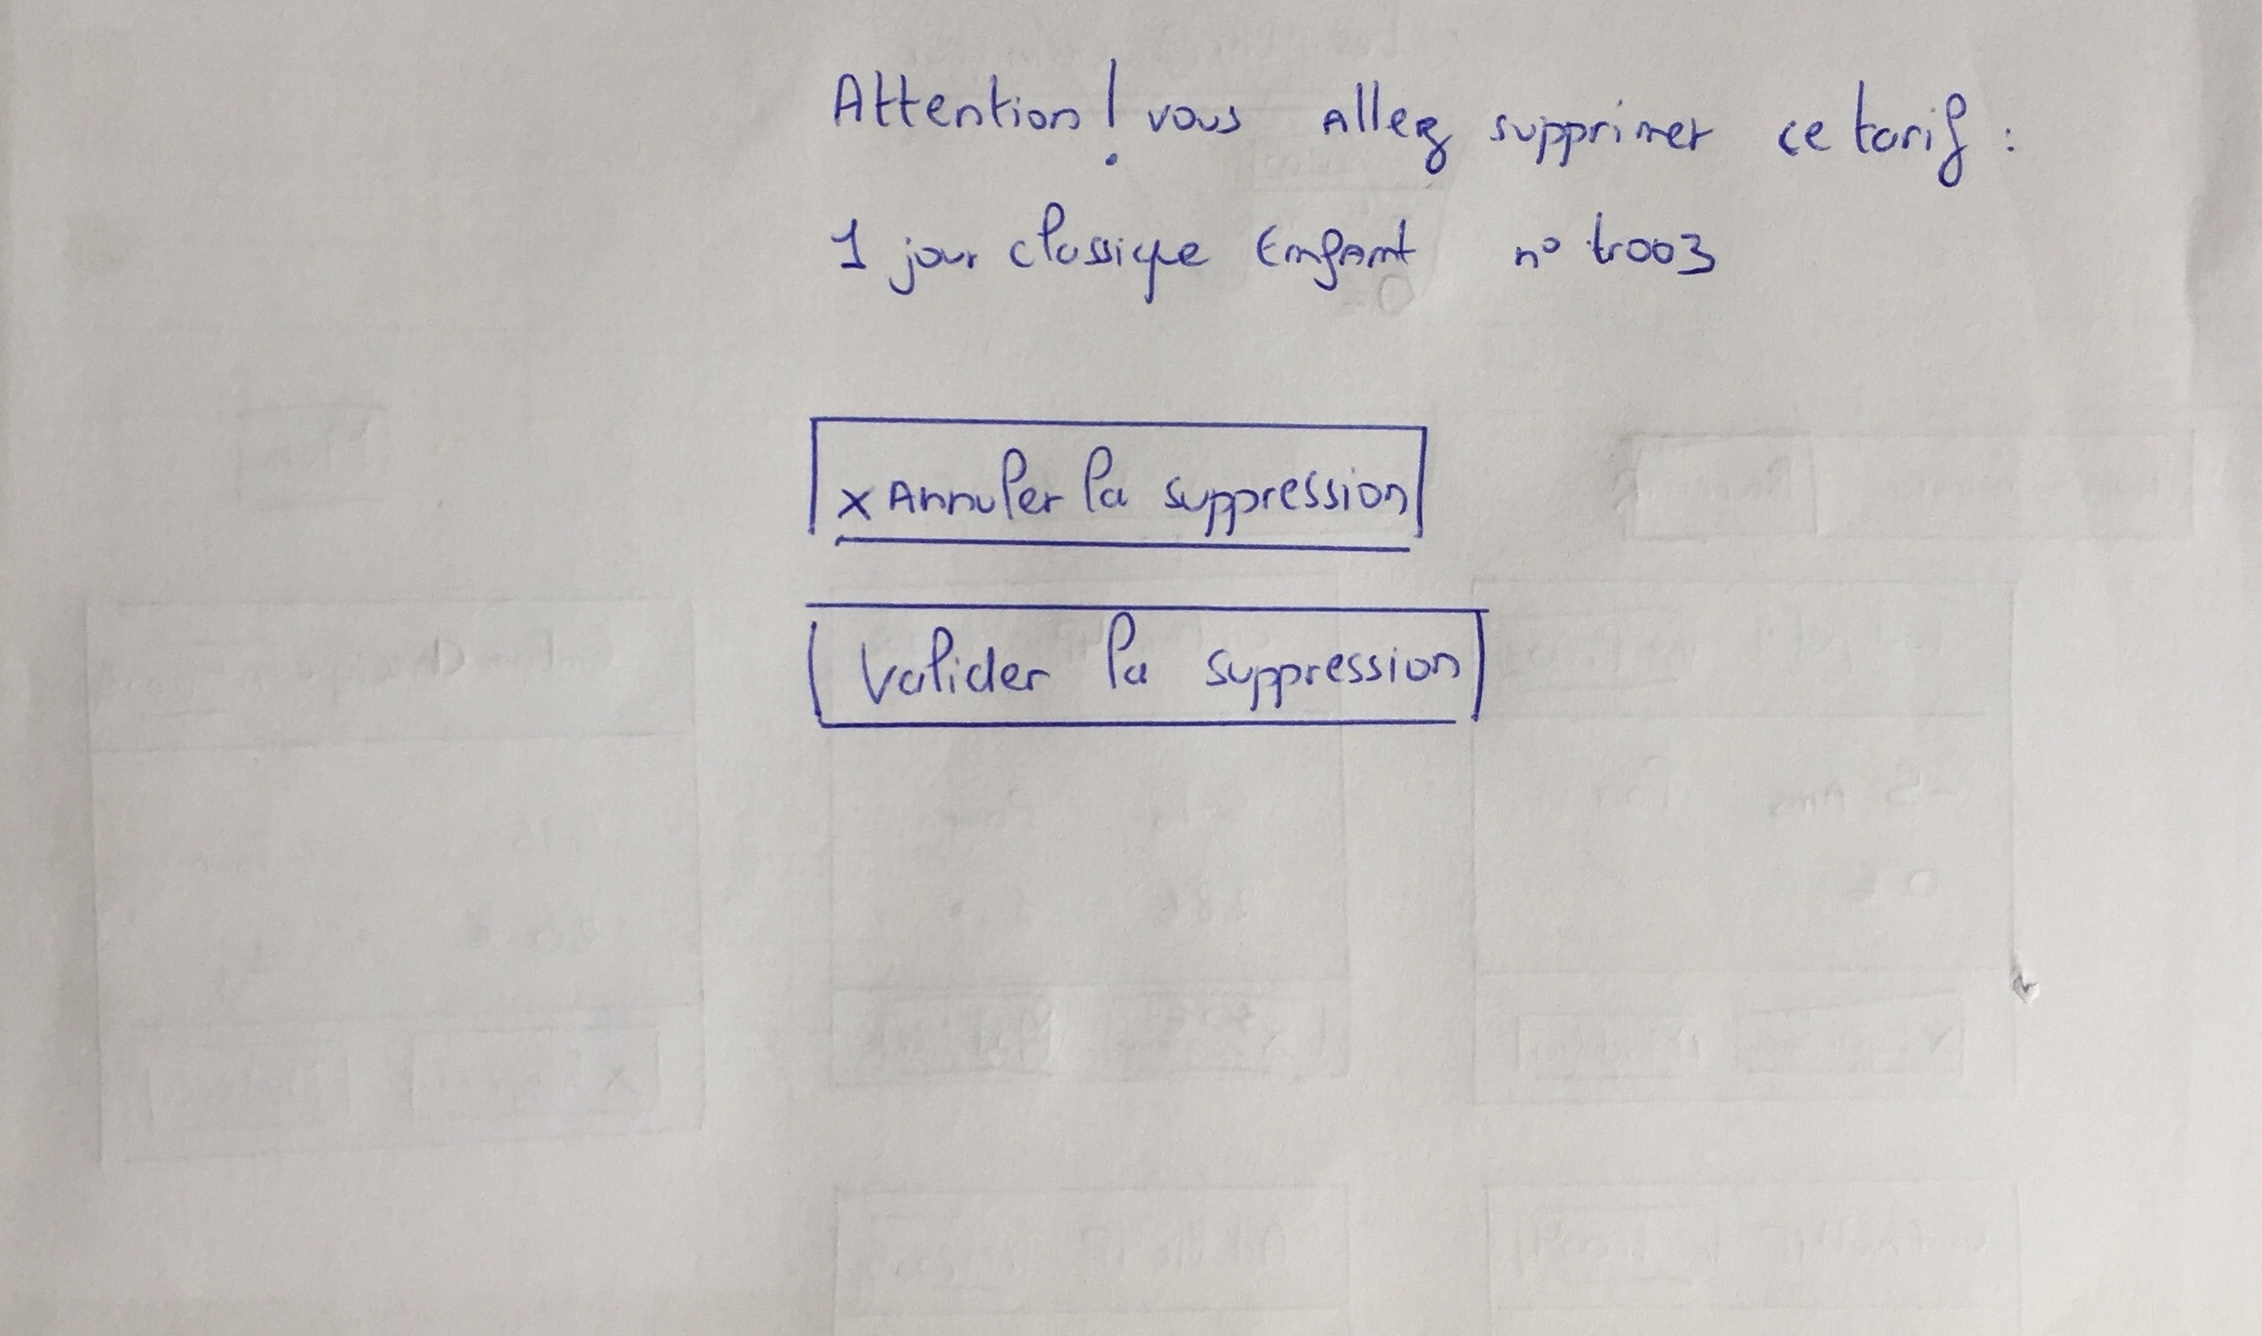 Attention ! vous allez supprimer ce tarif :
1 jour classique Enfant n° tr003
x Annuler la suppression
Valider la suppression